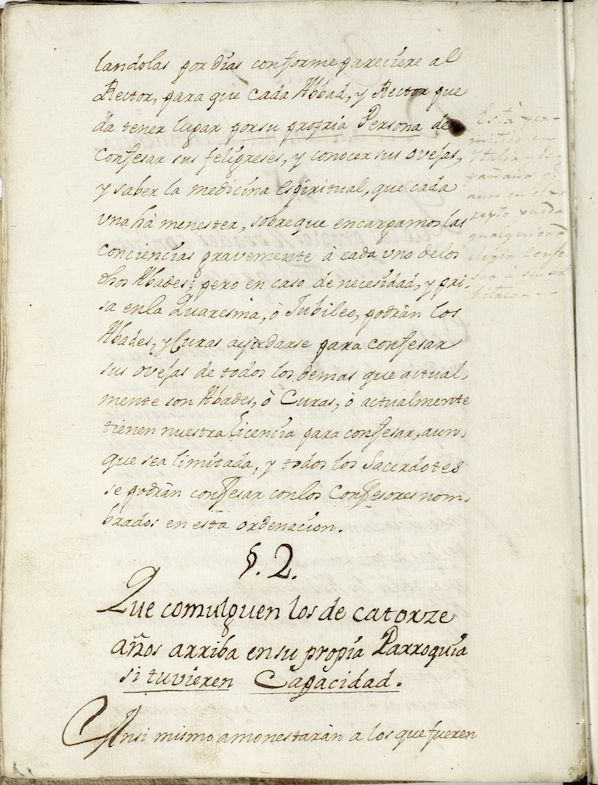 landolas por dias conforme pareciere al
Rector, para que cada Abbad, y Rector que
da tener lugar por su propria Persona de
Confesar sus feligreses, y conocer sus ovejas,
y saber la medicina espiritual, que cada
vna há menester, sobre que encargamos las
conciencias gravemente à cada uno de los
dhos Abades; pero en caso de necesidad, y pri-
sa en la Quaresma, ò Jubileo, podràn los
Abades, y Curas ayudarse para confesar
sus ovejas de todos los demas que actual,
mente son Abades, ò Curas, ò actualmente
tienen nuestra licencia para confesar, aun,
que sea limitada, y todos los Sacerdotes
se podràn confesar con los Confesores nom,
brados en esta ordenacion.
§. 2.
Que comulguen los de catorze
años arriba en su propia Parroquia
si tuvieren Capacidad.
Ansi mismo amonestaràn a los que fueren
Està per-
mitido en
Italia y Es-
pañaña
que
qualquiera
elegir Confe
sor à su ar
bitrio